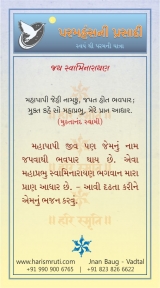 પરબ્રહ્મની પ્રસાદી
સ્વયં થી પરમની યાત્રા
જય સ્વામિનારાયણ
મહાપાપી જેહી નામકું, જપત હોત ભવપાર;
મુક્ત કહે સો મહાપ્રભુ, મેરે પ્રાન આધાર.
(મુક્તાનંદ સ્વામી)
મહાપાપી જીવ પણ જેમનું નામ
જપવાથી ભવપાર થાય છે. એવા
મહાપ્રભુ સ્વામિનારાયણ ભગવાન મારા
પ્રાણ આધાર છે. – આવી દૃઢતા કરીને
એમનું ભજન કરવું.
www.harismruti.com
Jnan Baug - Vadtal
+91 990 900 6765 | +91 823 826 6622